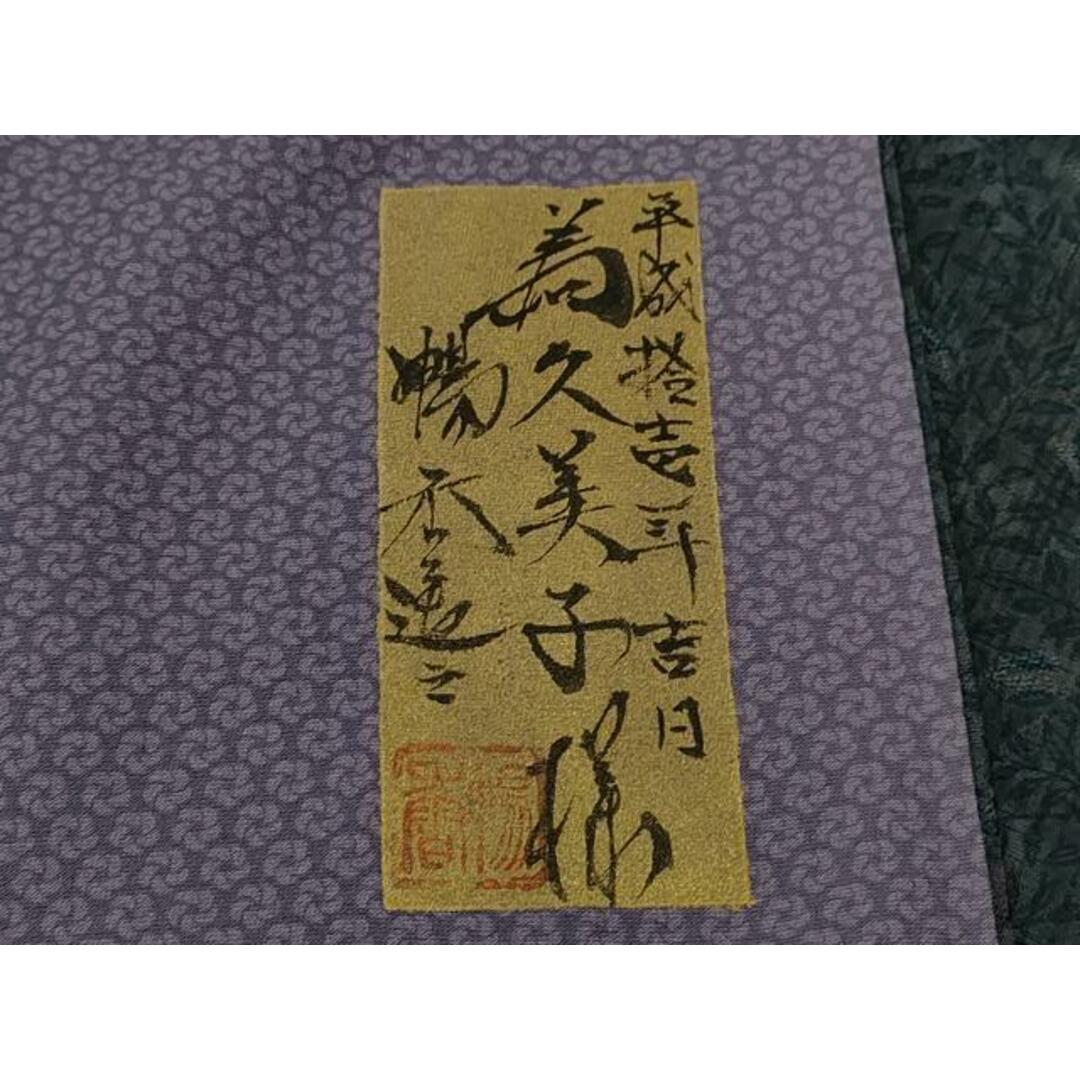 平成拾壱年吉日
為久美子様
暢承造之